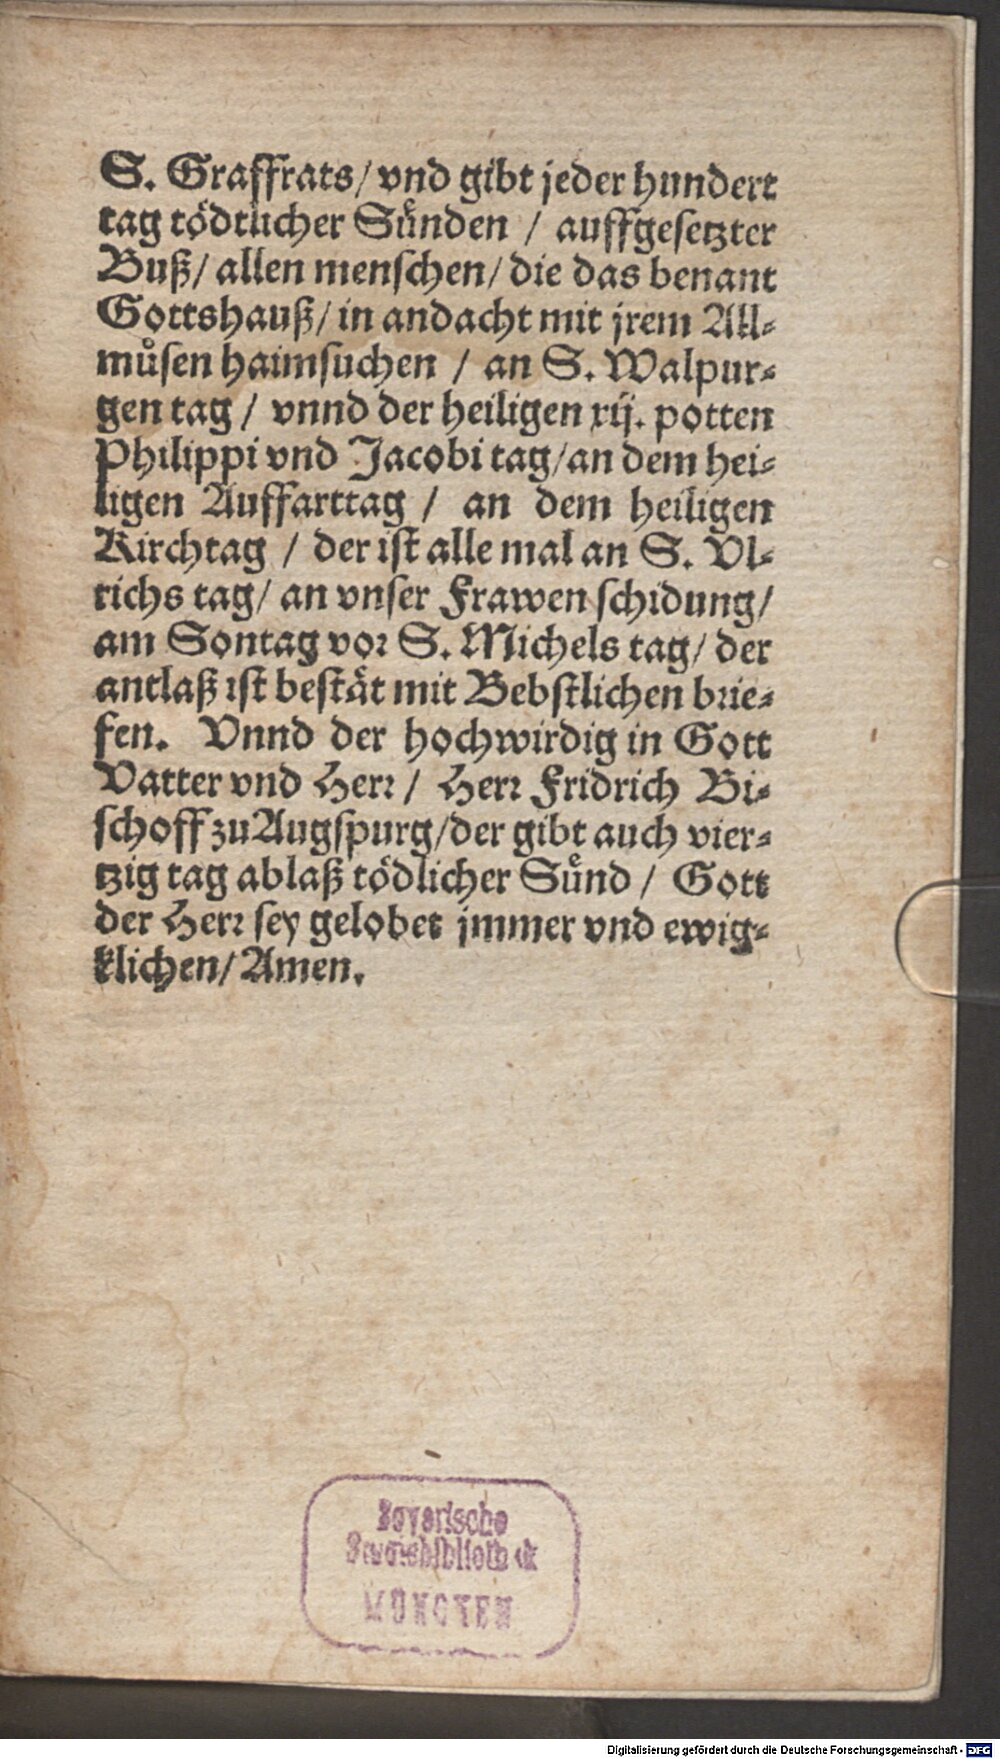 S. Graffrats/ vnd gibt jeder hundert
tag tödtlicher Sünden / auffgesetzter
Buß/ allen menschen/ die das benant
Gottshauß/ in andacht mit jrem All-
můsen haimsuchen / an S. Walpur-
gen tag / vnnd der heiligen xij. potten
Philippi vnd Jacobi tag/ an dem hei-
ligen Auffarttag / an dem heiligen
Kirchtag / der ist alle mal an S. Vl-
richs tag/ an vnser Frawen schidung/
am Sontag vor S. Michels tag/ der
antlaß ist bestät mit Bebstlichen brie-
fen. Vnnd der hochwirdig in Gott
Vatter vnd Herr / Herr Fridrich Bi-
schoff zu Augspurg/ der gibt auch vier-
tzig tag ablaß tödlicher Sünd / Gott
der Herr sey gelobet jmmer vnd ewig-
klichen/ Amen.
Bayerische
Staatsbibliothek
MÜNCHEN
Digitalisierung gefördert durch die Deutsche Forschungsgemeinschaft - DFG